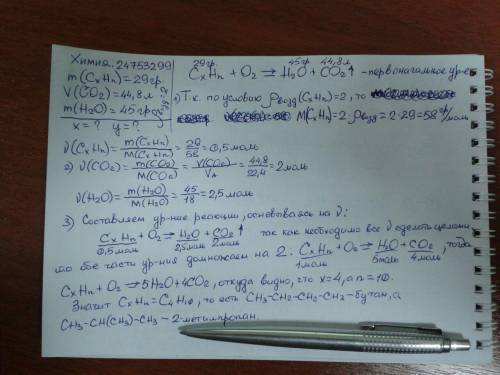 Химия: 24753299
m(CxHn)=29гр.
V(CO2)=44,8л
m(H2O)=45гр
x=? y=?
29гр. 45гр 44,8л
CxHn + O2 → H2O + CO2↑ - первоначальное ур-е
1) Т.к. по условию ρвозд(CxHn)=2, то
M(CxHn)=2·ρвозд=2·29=58 гр/моль
ν(CxHn)= m(CxHn)/M(CxHn) = 29/58 = 0,5 моль
2) ν(CO2)= m(CO2)/M(CO2) = V(CO2)/VA = 44,8/22,4 = 2 моль
ν(H2O)= m(H2O)/M(H2O) = 45/18 = 2,5 моль
3) Составляем ур-ние реакции, основываясь на ν:
CxHn + O2 → H2O + CO2↑ так как необходимо все ν сделать целыми,
0,5моль 2,5моль 2моль
то обе части ур-ния домножаем на 2: CxHn + O2 → H2O + CO2, тогда
1моль 5моль 4моль
CxHn + O2 → 5H2O + 4CO2, откуда видно, что x=4, а n=10.
Значит CxHn=C4H10, то есть CH3-CH2-CH2-CH3-бутан, а
CH3-CH(CH3)-CH3 - 2-метилпропан.